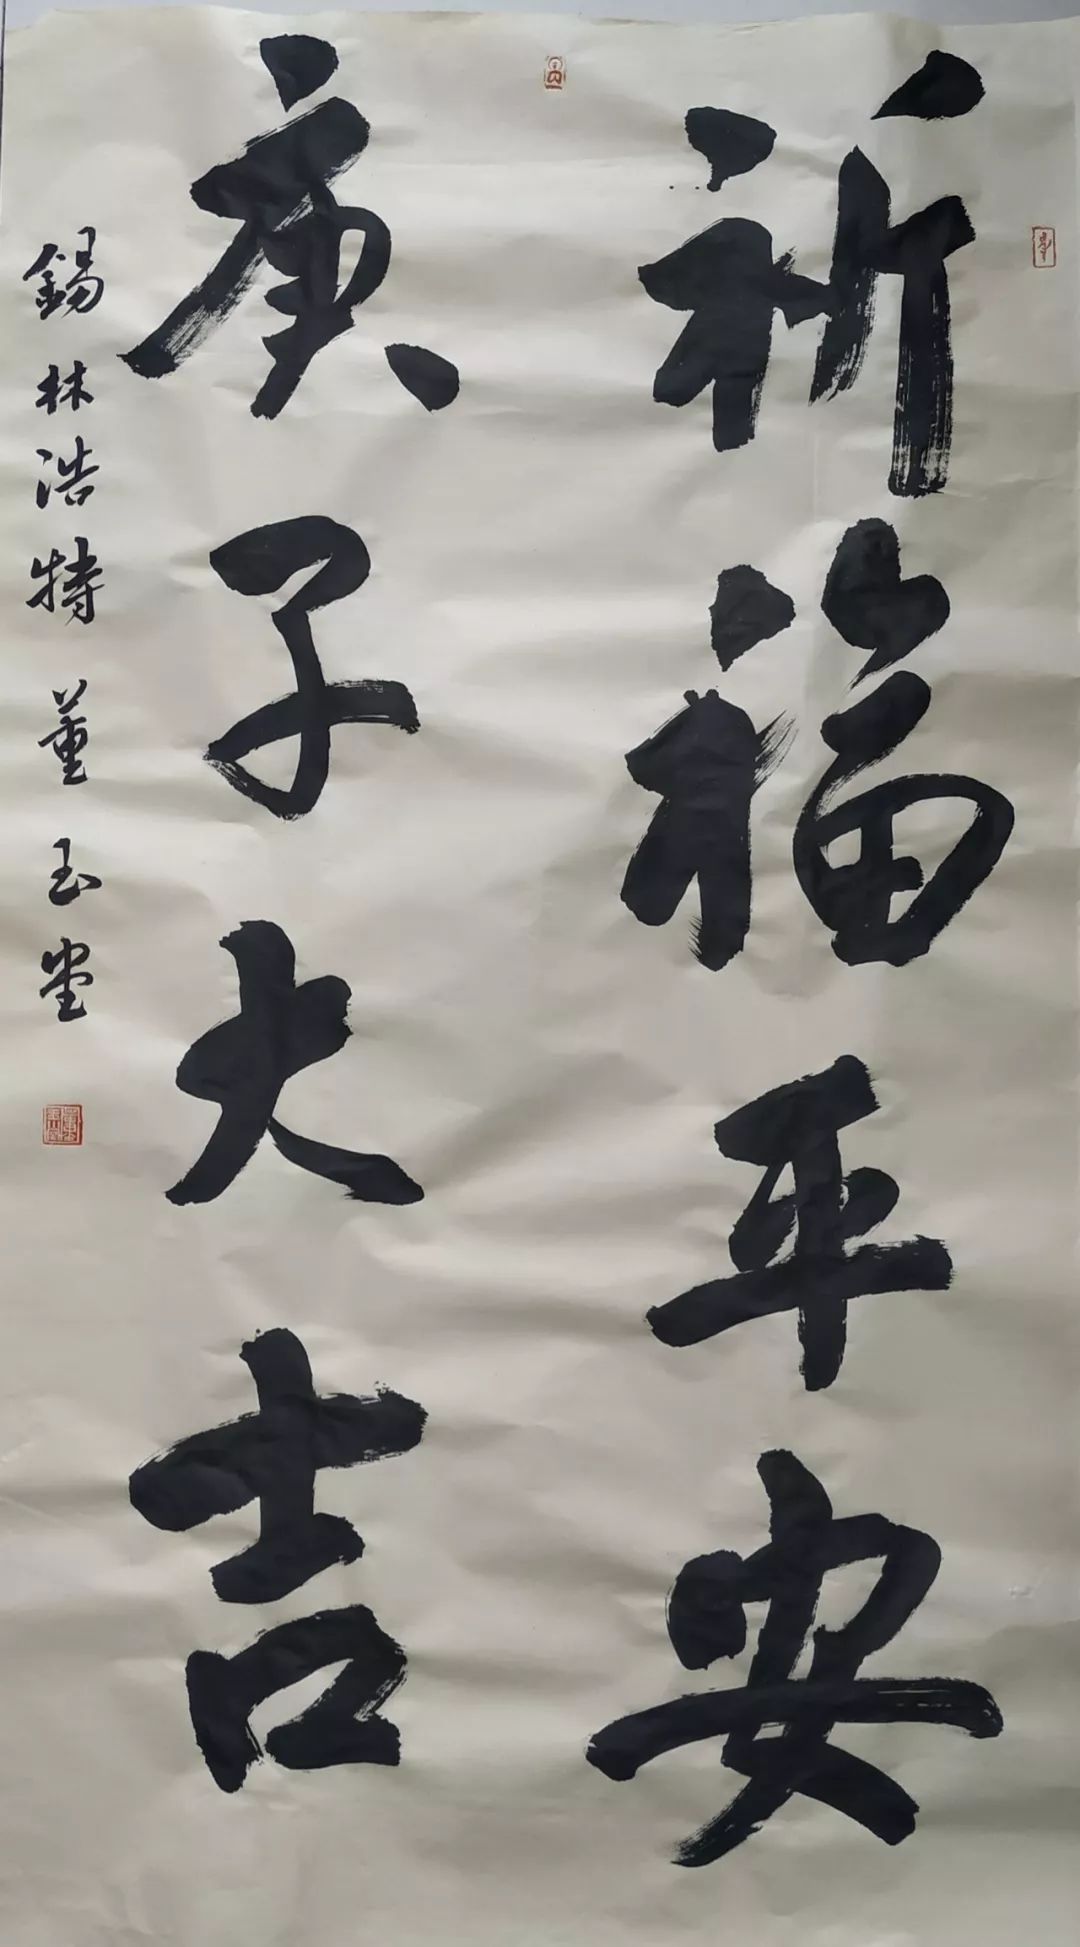 祈福平安
庚子大吉
錫林浩特 董玉堂